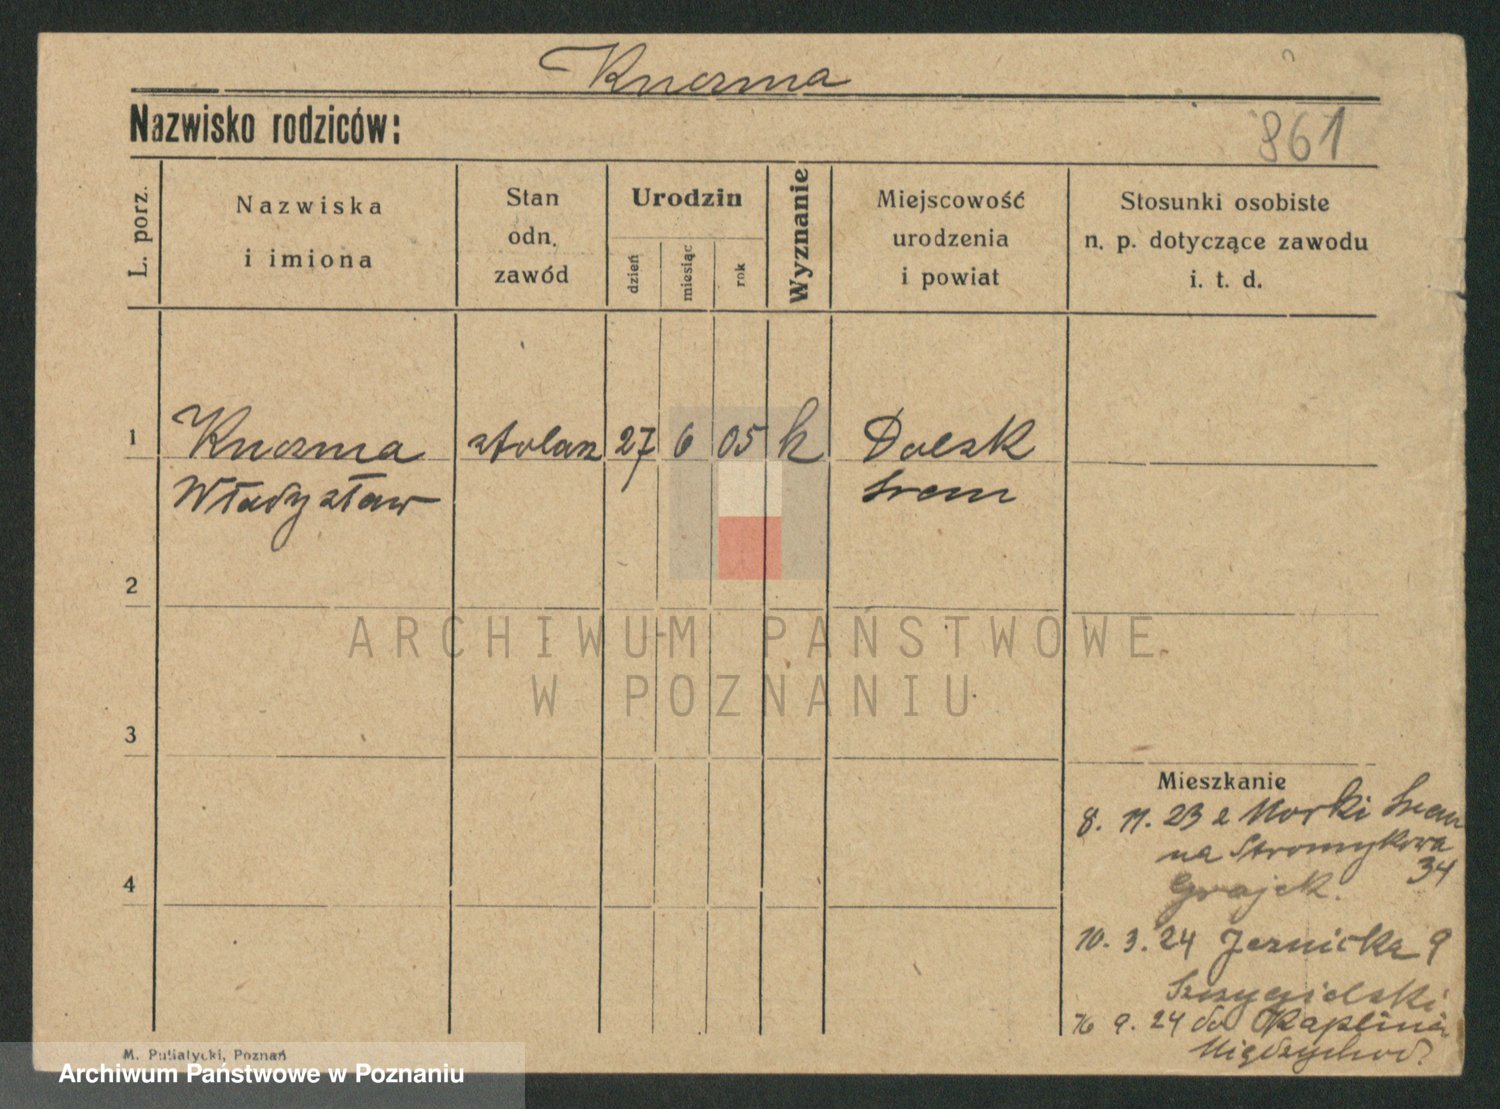 Knosma
Nazwisko rodziców:
861
L. porz.
Nazwiska
i imiona
Stan
odn.
zawód
Urodzin
dzień
miesiąc
rok
Wyznanie
Miejscowość
urodzenia
i powiat
Stosunki osobiste
n. p. dotyczące zawodu
i. t. d.
1 Knosma stolarz 27 6 05 k Dolsk
Władysław Śrem
2
ARCHIWUM PAŃSTWOWE
W POZNANIU
3
Mieszkanie
8. 11. 23 z Mórki Śrem
na Strumykowa
34
4
Grajek.
10. 3. 24 9
Szczygielski
16 9. 24 do Kaplina
Międzychod.
M. Putiatycki, Poznań
Archiwum Państwowe w Poznaniu